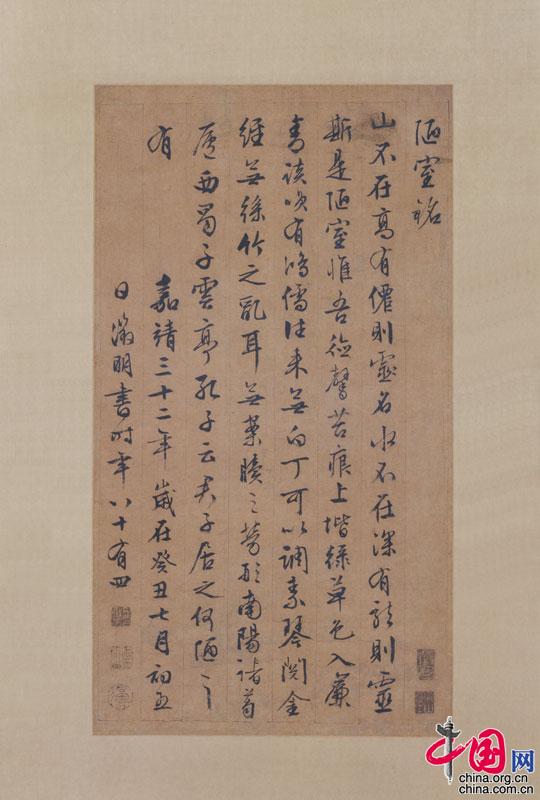 陋室銘
山不在高有僊則靈名水不在深有龍則靈
斯是陋室惟吾德馨苔痕上堦綠草色入簾
青談咲有鴻儒往來無白丁可以調素琴閱金
經無絲竹之亂耳無案牘之勞形南陽諸葛
廬西蜀子雲亭孔子云君子居之何陋之
有 嘉靖三十二年歲在癸丑七月初五
日徵明書時年八十有四
中国网
china.org.cn
china.com.cn